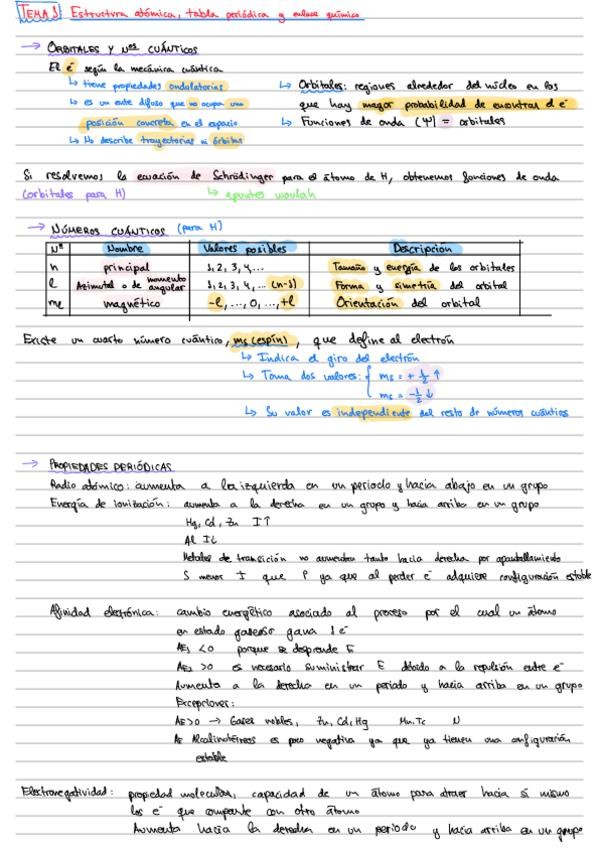 TEMA 1: Estructura atómica, tabla periódica y enlace químico
→ ORBITALES Y Nos CUÁNTICOS
El e⁻ según la mecánica cuántica
↳ tiene propiedades ondulatorias
↳ es un ente difuso que no ocupa una
posición concreta en el espacio
↳ No describe trayectorias ni órbitas
↳ Orbitales: regiones alrededor del núcleo en las
que hay mayor probabilidad de encontrar el e⁻
↳ Funciones de onda (Ψ) = orbitales
Si resolvemos la ecuación de Schrödinger para el átomo de H, obtenemos funciones de onda
(orbitales para H) ↳ apuntes
→ NÚMEROS CUÁNTICOS (para H)
Nº Nombre Valores posibles Descripción
n principal 1, 2, 3, 4,... Tamaño y energía de los orbitales
l Azimutal o de momento angular 1, 2, 3, 4, ... (n-1) Forma y simetría del orbital
ml magnético -l, ..., 0, ..., +l Orientación del orbital
Existe un cuarto número cuántico, ms (espín), que define al electrón
↳ Indica el giro del electrón
↳ Toma dos valores: { ms = + 1/2 ↑
ms = - 1/2 ↓
↳ Su valor es independiente del resto de números cuánticos
→ PROPIEDADES PERIÓDICAS
Radio atómico: aumenta a la izquierda en un periodo y hacia abajo en un grupo
Energía de ionización: aumenta a la derecha en un grupo y hacia arriba en un grupo
Hg, Cd, Zn I↑
Al I↓
Metales de transición no aumentan tanto hacia derecha por apantallamiento
S menor I que P ya que al perder e⁻ adquiere configuración estable
Afinidad electrónica: cambio energético asociado al proceso por el cual un átomo
en estado gaseoso gana 1 e⁻
AE1 <0 porque se desprende E
AE2 >0 es necesario suministrar E debido a la repulsión entre e⁻
Aumenta a la derecha en un periodo y hacia arriba en un grupo
Excepciones:
AE>0 → Gases nobles, Zn, Cd, Hg Mn, Tc N
AE Alcalinotérreos es poco negativa ya que ya tienen una configuración
estable
Electronegatividad: propiedad molecular, capacidad de un átomo para atraer hacia sí mismo
los e⁻ que comparte con otro átomo
Aumenta hacia la derecha en un periodo y hacia arriba en un grupo